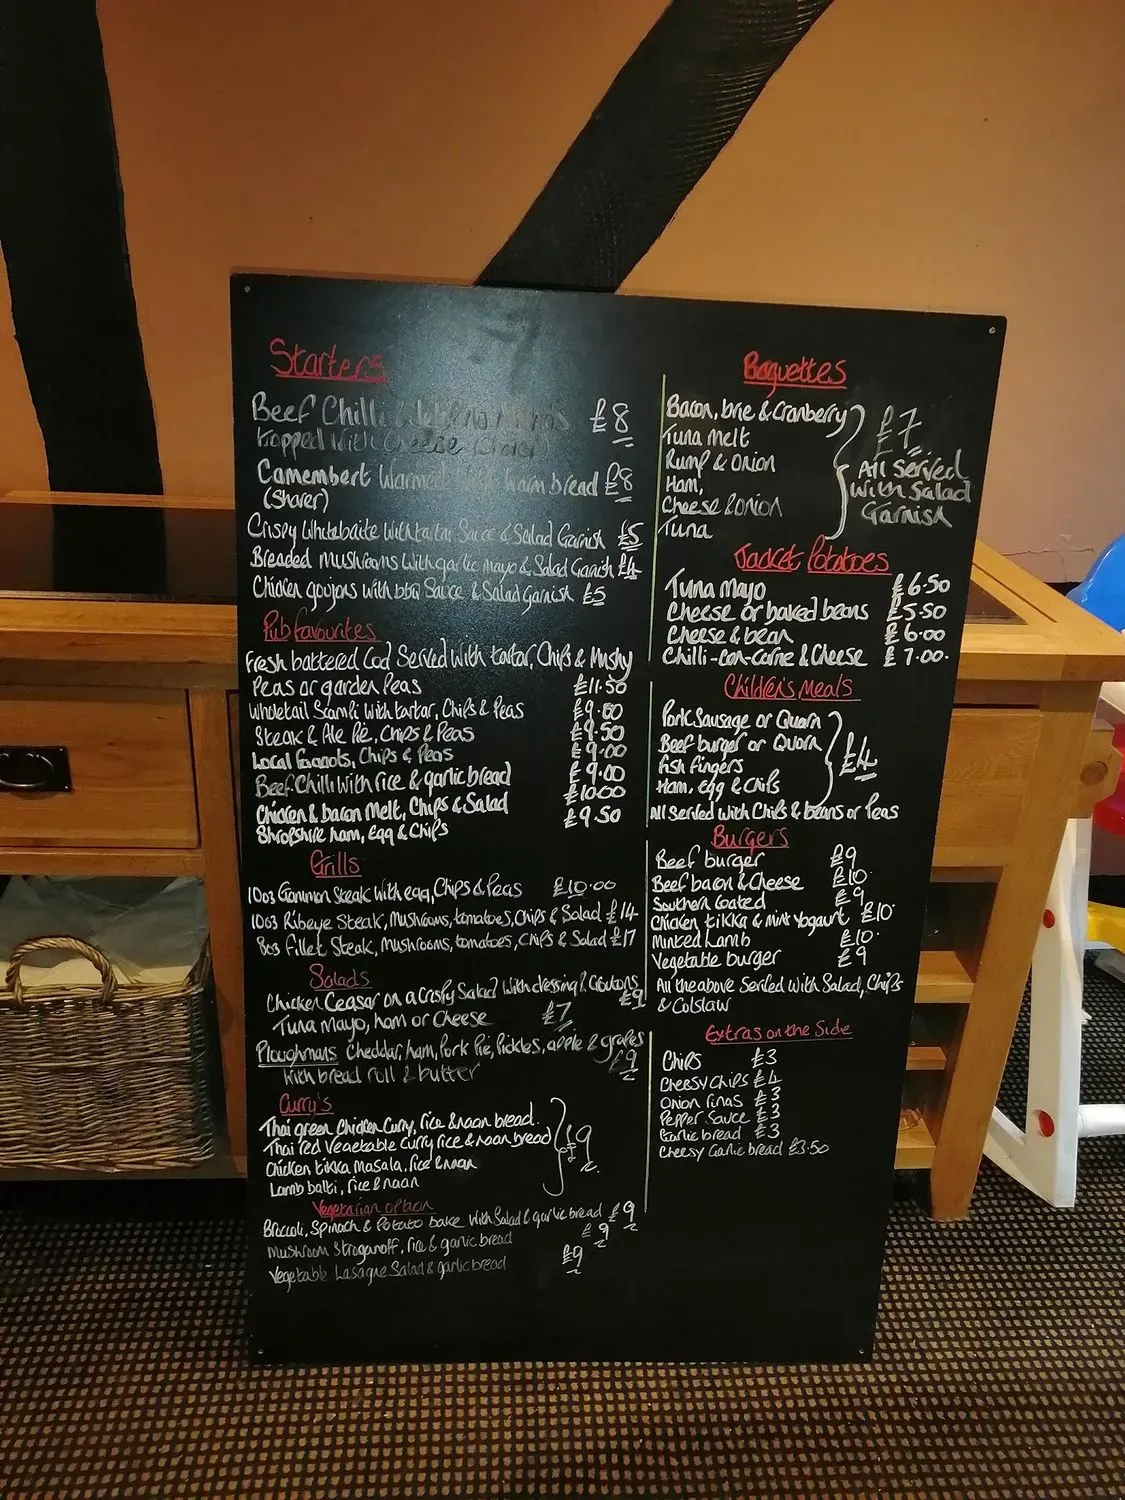 Starters
Beef Chilli & Nachos
topped with Cheese (Sharer) £8
Camembert Warmed with warm bread £8
(Sharer)
Crispy Whitebaite with tartar Sauce & Salad Garnish £5
Breaded Mushrooms with garlic mayo & Salad Garnish £4
Chicken goujons with bbq Sauce & Salad Garnish £5
Pub favourites
Fresh battered Cod Served with tartar, Chips & Mushy
Peas or garden Peas £11.50
Wholetail Scampi with tartar, Chips & Peas £9.50
Steak & Ale Pie, Chips & Peas £9.50
Local Faggots, Chips & Peas £9.00
Beef Chilli with rice & garlic bread £9.00
Chicken & bacon Melt, Chips & Salad £10.00
Shropshire ham, Egg & Chips £9.50
Grills
10oz Gammon Steak with egg, Chips & Peas £10.00
10oz Ribeye Steak, Mushrooms, tomatoes, Chips & Salad £14
8oz Fillet Steak, Mushrooms, tomatoes, Chips & Salad £17
Salads
Chicken Ceasar on a Crispy Salad with dressing & Croutons £9
Tuna Mayo, ham or Cheese £7
Ploughmans Cheddar, ham, Pork Pie, Pickles, apple & grapes
with bread roll & butter £9
Curry's
Thai green Chicken Curry, rice & naan bread.
Thai red Vegetable Curry rice & naan bread £9
Chicken tikka Masala, rice & naan
Lamb balti, rice & naan
Vegetarian option
Broccoli, Spinach & Potato bake with Salad & garlic bread £9
Mushroom Stroganoff, rice & garlic bread £9
Vegetable Lasagne Salad & garlic bread £9
Baguettes
Bacon, brie & Cranberry £7
Tuna Melt
Rump & Onion
Ham,
Cheese & Onion
Tuna
All Served
with Salad
Garnish
Jacket Potatoes
Tuna Mayo £6.50
Cheese or baked beans £5.50
Cheese & bean £6.00
Chilli-con-Carne & Cheese £7.00.
Children's Meals
Pork Sausage or Quorn
Beef burger or Quorn £4
Fish fingers
Ham, egg & Chips
All Served with Chips & beans or Peas
Burgers
Beef burger £9
Beef bacon & Cheese £10.
Southern Coated £9
Chicken tikka & Mint Yogurt £10
Minted Lamb £10.
Vegetable burger £9
All the above Served with Salad, Chips
& Colslaw
Extras on the Side
Chips £3
Cheesy Chips £4
Onion rings £3
Pepper Sauce £3
Garlic bread £3
Cheesy Garlic bread £3.50